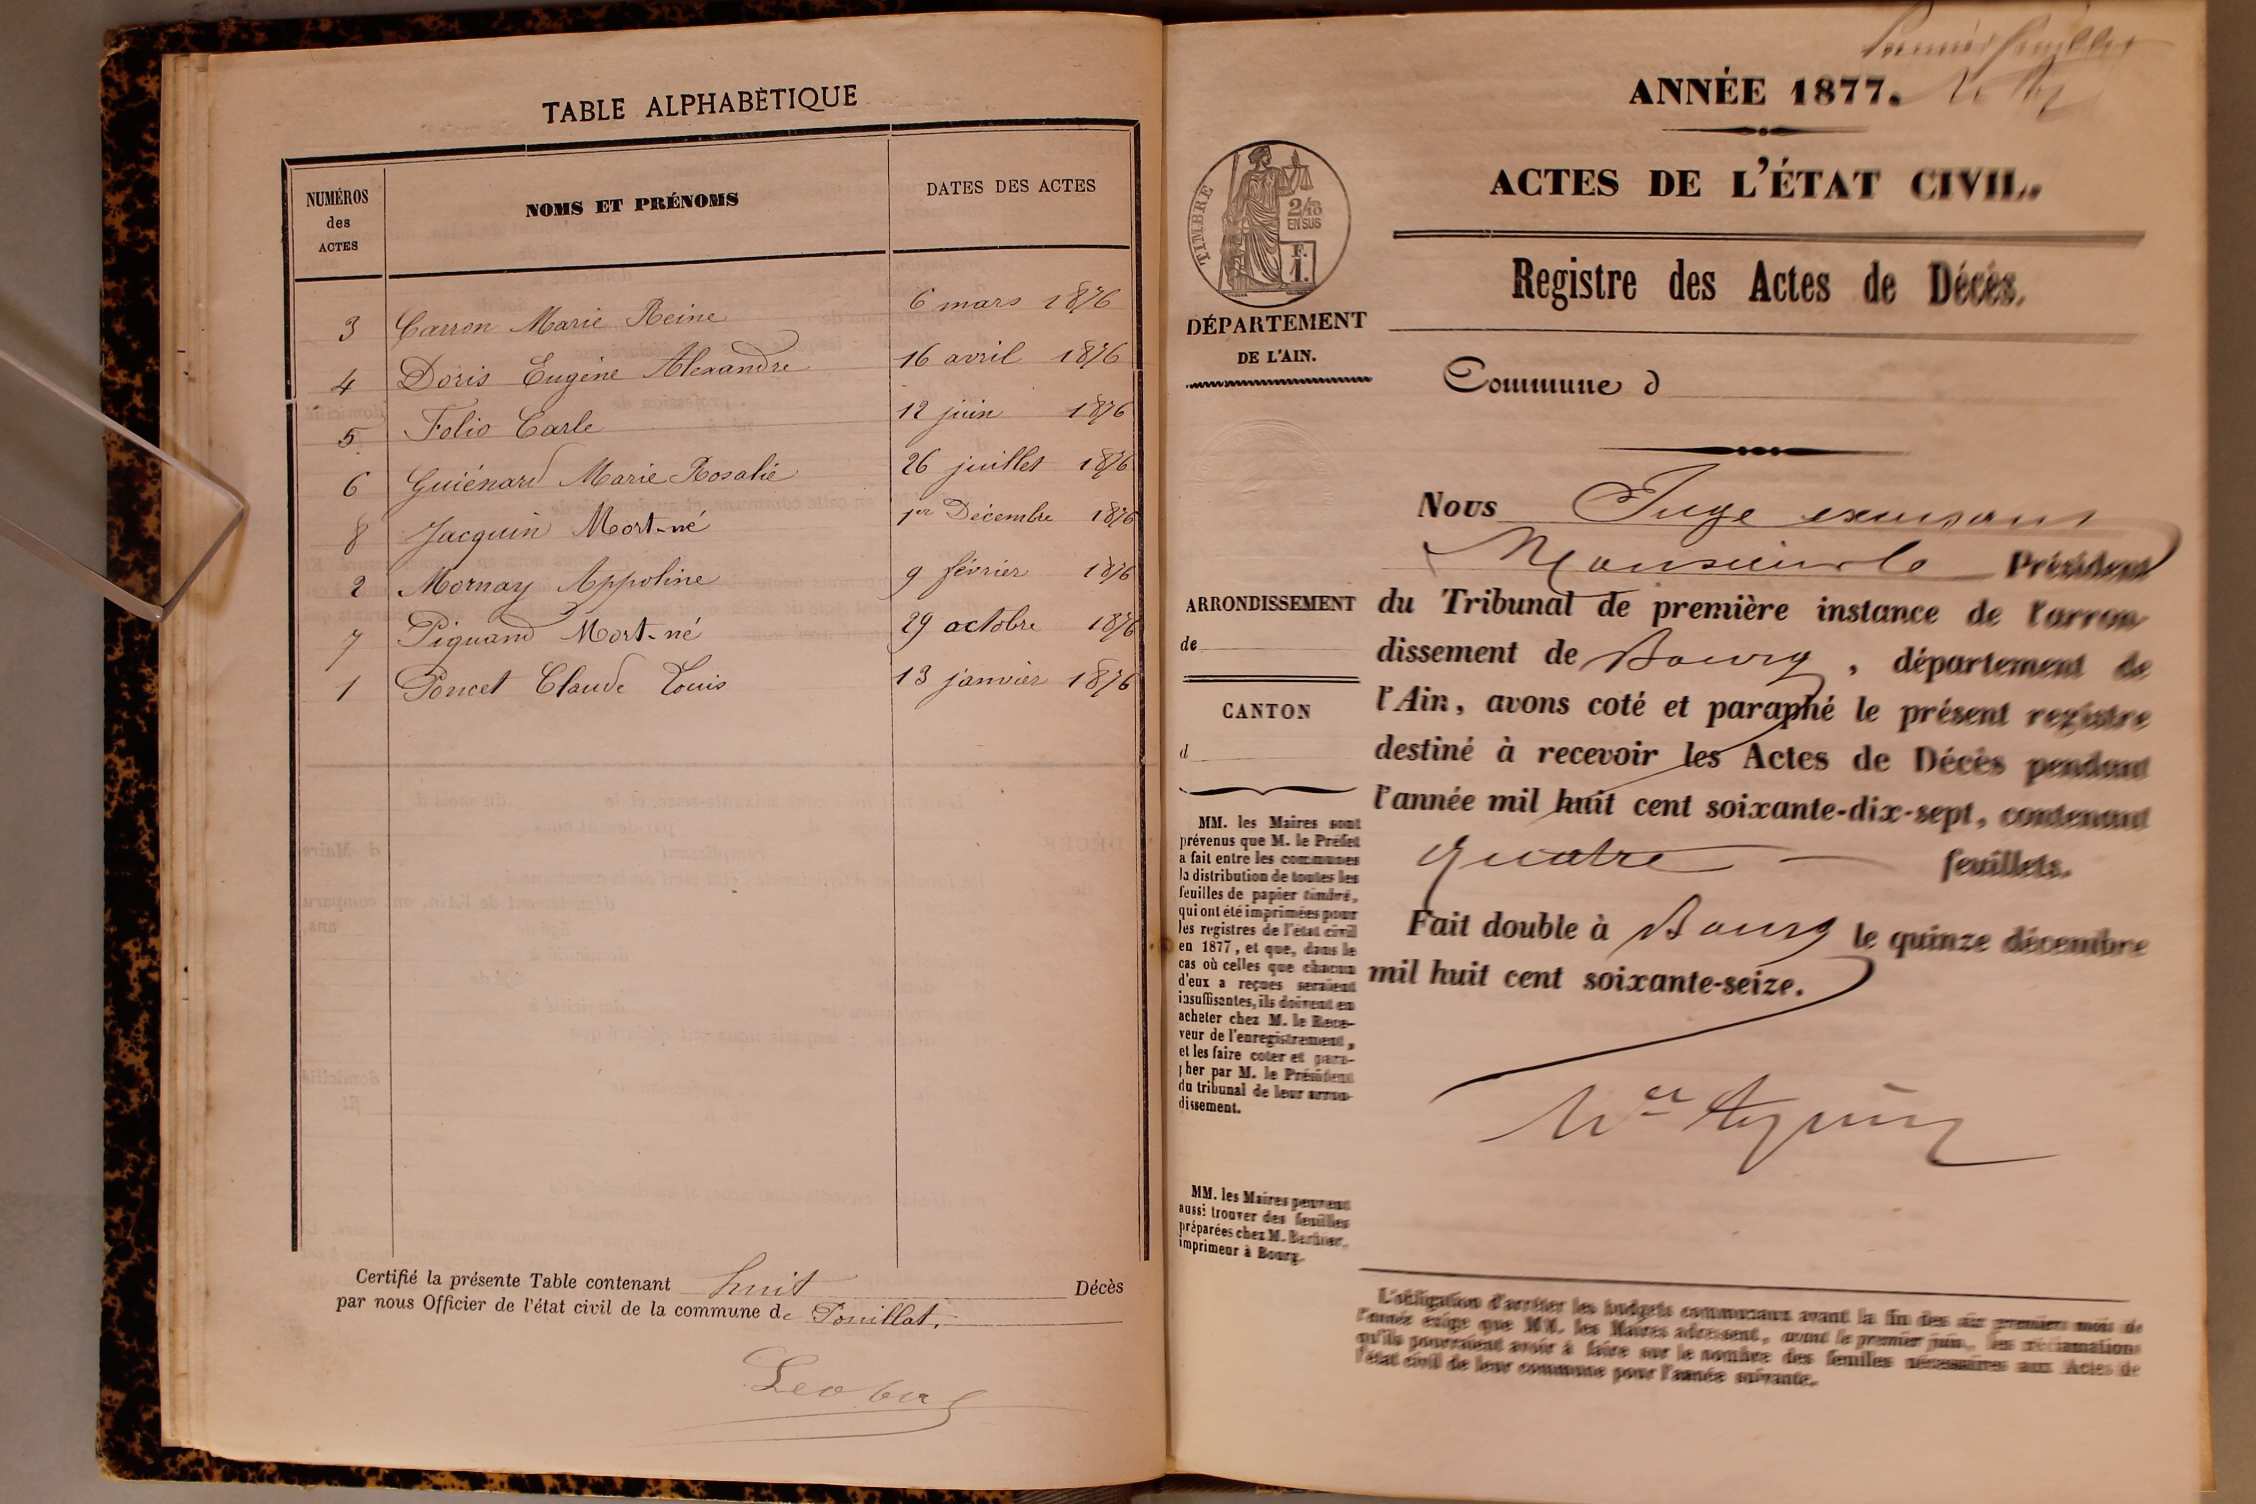 TABLE ALPHABÉTIQUE
NUMÉROS des ACTES
NOMS ET PRÉNOMS
DATES DES ACTES
3 Carron Marie Reine 6 mars 1876
4 Doris Eugène Alexandre 16 avril 1876
5 Folio Carle 12 juin 1876
6 Guiénard Marie Rosalie 26 juillet 1876
8 Jacquin Mort-né 1er Décembre 1876
2 Mornay Appoline 9 février 1876
7 Piquand Mort-né 29 octobre 1876
1 Poncet Claude Louis 13 janvier 1876
Certifié la présente Table contenant huit Décès
par nous Officier de l'état civil de la commune de Pouillat.
Premier feuillet
ANNÉE 1877.
ACTES DE L'ÉTAT CIVIL.
TIMBRE
2/10
EN SUS
F.
1.
Registre des Actes de Décès.
DÉPARTEMENT
DE L'AIN.
Commune d
Nous Juge
Monsieur le Président
ARRONDISSEMENT
de
du Tribunal de première instance de l'arron-
dissement de Bourg, département de
l'Ain, avons coté et paraphé le présent registre
destiné à recevoir les Actes de Décès pendant
l'année mil huit cent soixante-dix-sept, contenant
quatre feuillets.
Fait double à Bourg le quinze décembre
mil huit cent soixante-seize.
CANTON
d
MM. les Maires sont
prévenus que M. le Préfet
a fait entre les communes
la distribution de toutes les
feuilles de papier timbré,
qui ont été imprimées pour
les registres de l'état civil
en 1877, et que, dans le
cas où celles que chacun
d'eux a reçues seraient
insuffisantes, ils doivent en
acheter chez M. le Rece-
veur de l'enregistrement,
et les faire coter et para-
pher par M. le Président
du tribunal de leur arron-
dissement.
MM. les Maires peuvent
aussi trouver des feuilles
préparées chez M.
imprimeur à Bourg.
L'obligation d'arrêter les budgets communaux avant la fin des six premiers mois de
l'année exige que MM. les Maires adressent, avant le premier juin, les réclamations
qu'ils pourraient avoir à faire sur le nombre des feuilles nécessaires aux Actes de
l'état civil de leur commune pour l'année suivante.